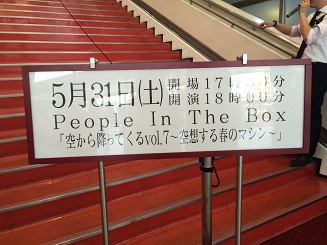 5月31日(土) 開場17時30分
開演18時00分
People In The Box
「空から降ってくるvol.7〜空想する春のマシン〜」